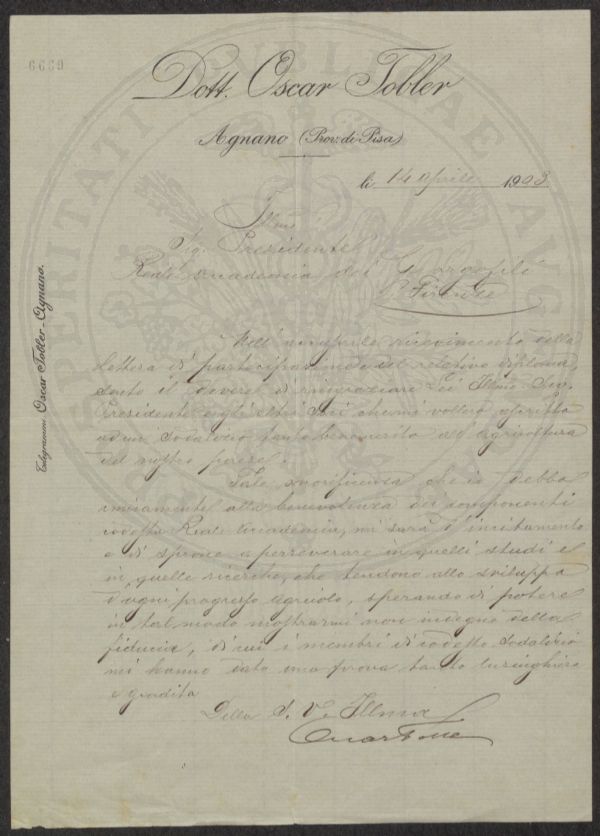 6669
Dott. Oscar Tobler
Agnano (Prov. di Pisa)
li 14 aprile 1903
Telegrammi Oscar Tobler - Agnano.
Illmo
Sig. Presidente
Reale Accademia dei Georgofili
Firenze
Nell' ricevimento della
lettera di partecipazione e del relativo diploma,
sento il dovere di ringraziare Lei Illmo Sig.
Presidente e gli altri Soci che mi vollero ascritto
ad un Sodalizio tanto benemerito dell'agricoltura
del nostro paese.
Tale onorificenza che io debbo
unicamente alla benevolenza dei componenti
codesta Reale Accademia, mi sarà d'incitamento
e di sprone a perseverare in quelli studi e
in quelle ricerche, che tendono allo sviluppo
d'ogni progresso agricolo, sperando di potere
in tal modo mostrarmi non indegno della
fiducia, di cui i membri di codesto Sodalizio
mi hanno dato una prova tanto lusinghiera
e gradita
Della S. V. Illma
Oscar Tobler